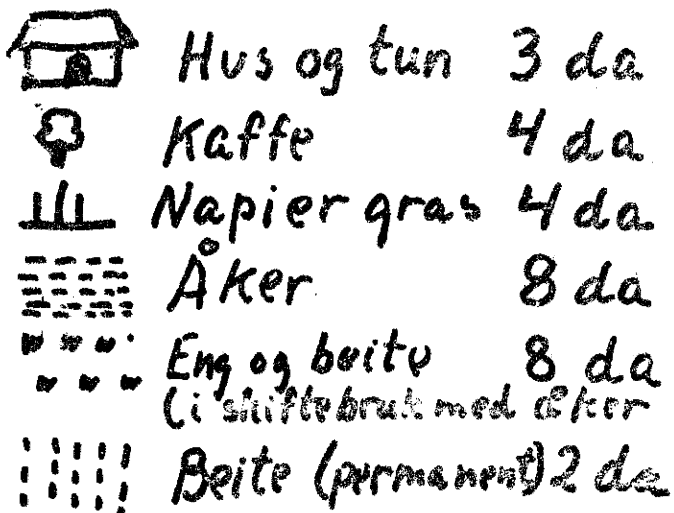 Hus og tun 3 da
Kaffe 4 da
Napier gras 4 da
Åker 8 da
Eng og beite 8 da
(i skiftebruk med åker
Beite (permanent) 2 da